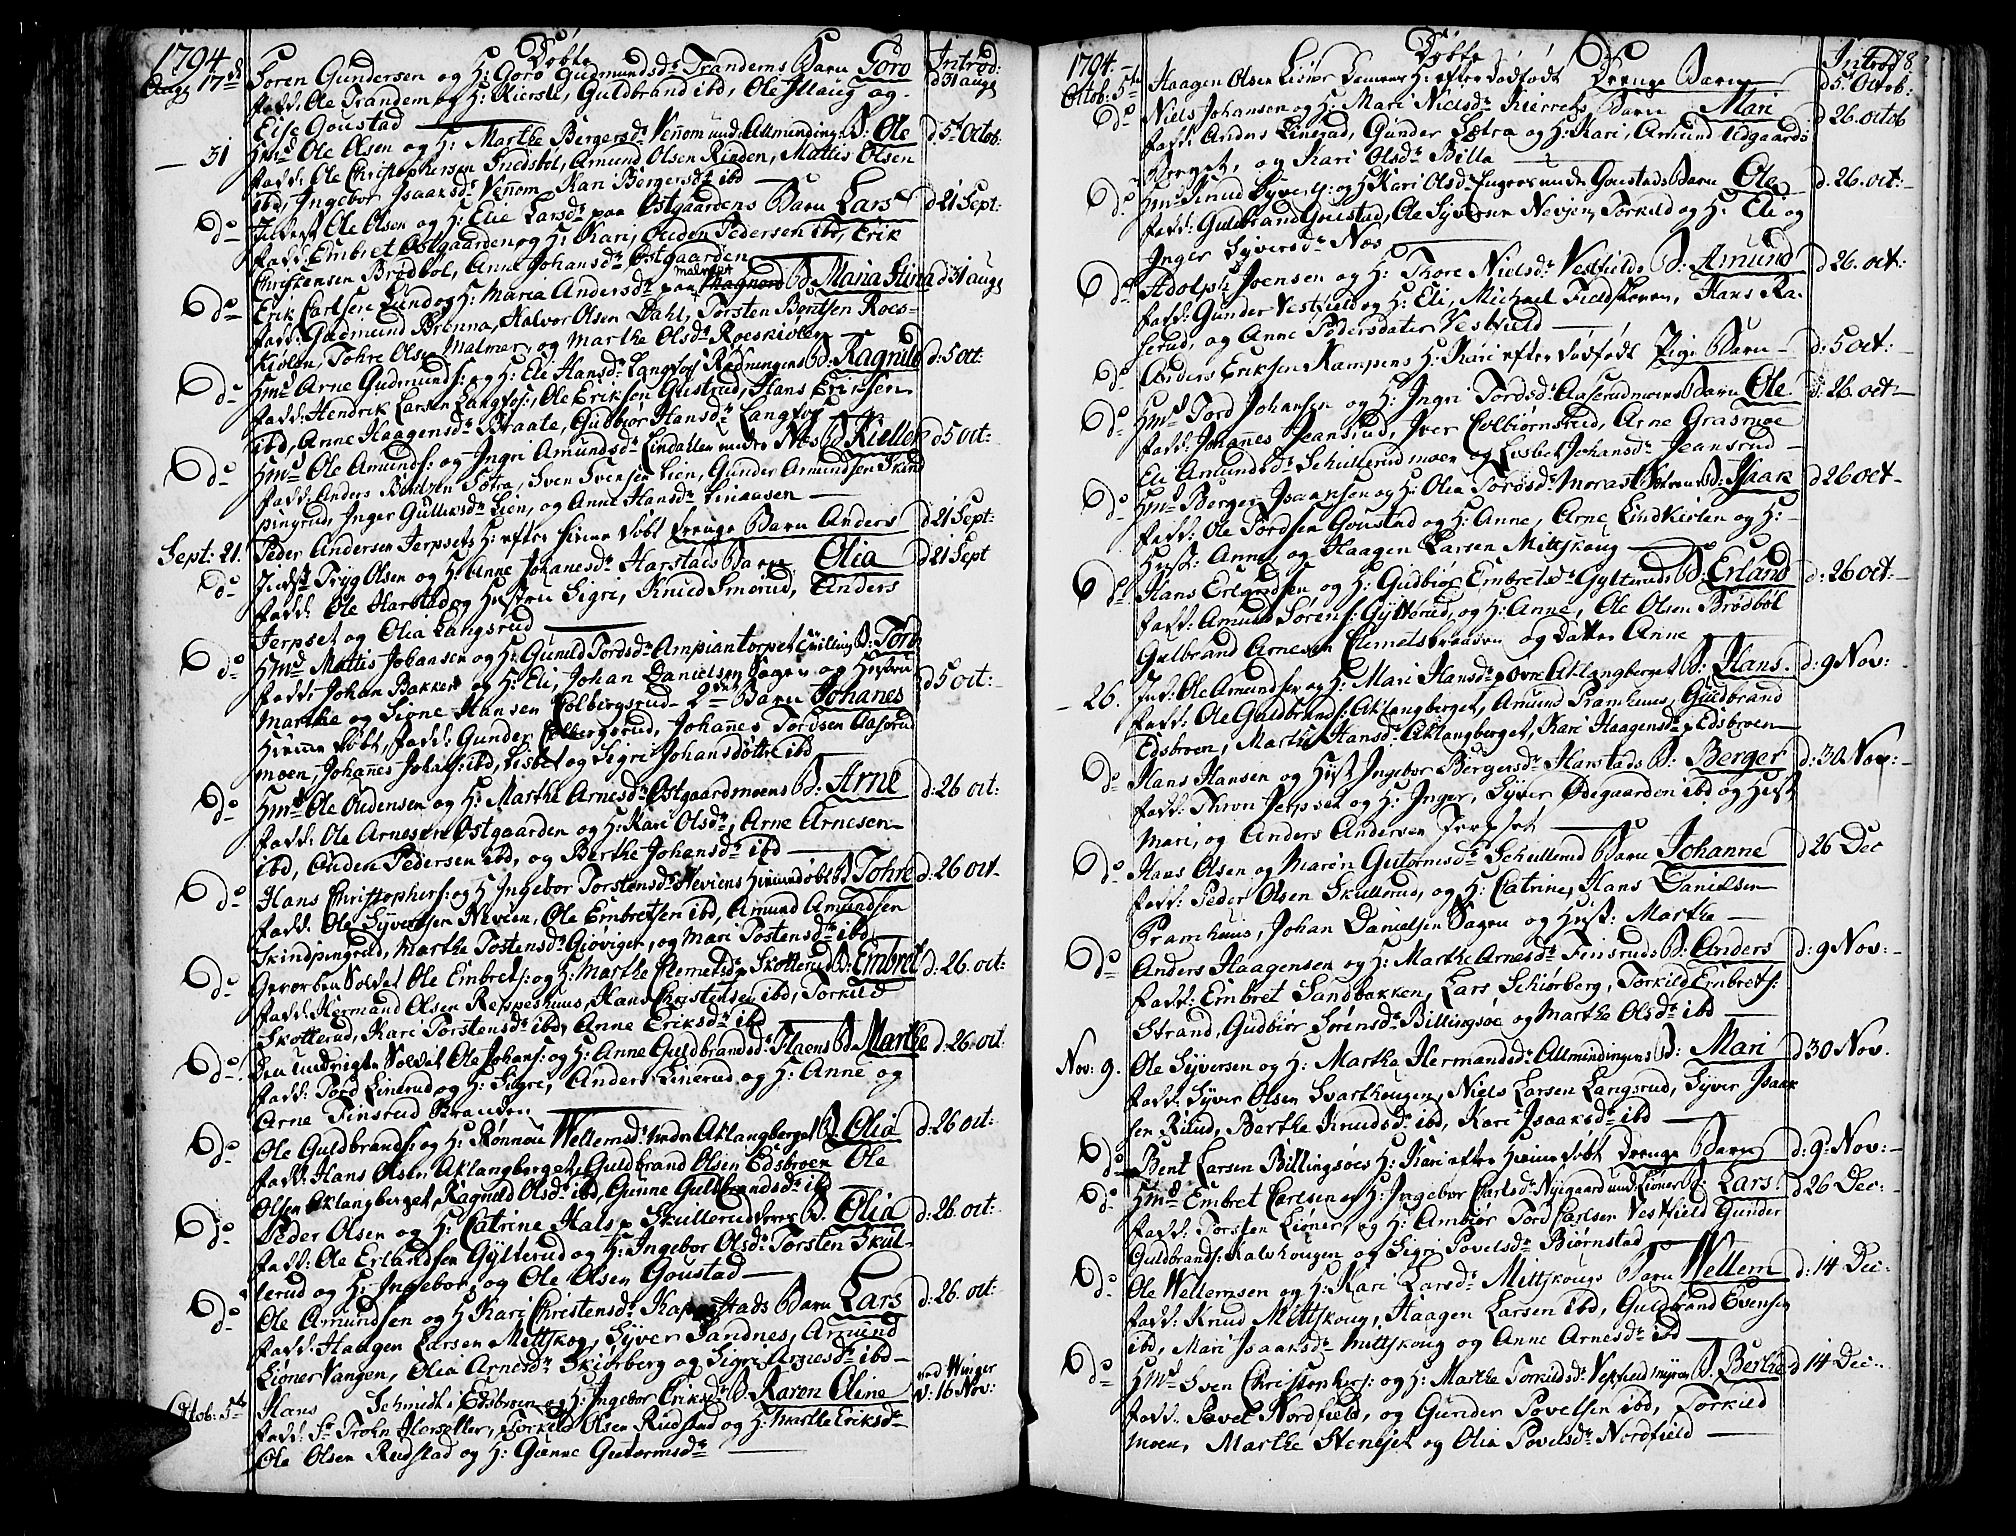 1794. Døbte Introd:
Aug: 17de Søren Gundersen og H: Goro Gudmundsdr Trandems Barn Goro d 31 aug
Fadd: Ole Trandem og H: Kierste, Guldbrand ibd, Ole Illaug og
Elsе Goustad
31 Hmd Ole Olsen og H: Marthe Bergersdr Vennom und: Allmunding B: Ole d 5te Octob:
Fadd: Ole Christophersen Fredsbøl, Amund Olsen Rinden, Mattis Olsen
ibd, Ingebor Isaaksdr Vennom, Kari Bergersdr ibd
do Ole Olsen og H: Elie Larsdr paa Østgaardens Barn Lars d 21 Sept:
Fadd: Embret Østgaarden og H: Kari, Ouden Pedersen ibd, Erik
Christensen Brødbøl, Anne Johansdr Østgaarden
do Erik Carlsen Lund og H: Maria Andersdr paa Barn Maria Stina d 31 aug
Fadd: Gudmund Brenna, Halvor Olsen Dahl, Torsten Bentsen Roes-
kiølen, Tohre Olsen Malmer, og Marthe Olsdr Roeskiølen
do Hmd Arne Gudmunds: og H: Eli Hansdr Langfos Rødningens B: Ragnild d: 5 oct:
Fadd: Hendrik Larsen Langfos, Ole Eriksen Gustrud, Hans Erichsen
ibd, Anne Haagensdr Braate, Gudbiør Hansdr Langfos
do Hmd Ole Amunds: og Ingri Amundsdr Lindahlen under Næs B: Kield d 5 oct:
Fadd: Anders Bentsen Sætra, Sven Svensen Lien, Gunder Amundsen Skind
pingrud, Inger Gulliksdr Lien, og Anne Hansdr
Sept: 21. Peder Andersen Jerpsets H: efter hieme døbt Drenge Barn Anders d 21 Sept:
do Tryg Olsen og H: Anne Johanesdr Harstads Barn Olia d 21 Sept
Fadd: Ole Harstad og Hustru Sigri, Knud Smerud, Anders
Jerpset og Olia Langsrud
do Hmd Mattis Johansen og H: Gunild Tordsdr Ampiantorpet Tvilling B: Tord
Fadd: Johan Bakken og H: Eli, Johan Danielsen Sagen og Hustru d 5 oct:
Marthe og Signe Hansen Colbergsrud. 2det Barn Johanes
Hieme døbt, Fadd: Gunder Colbergsrud, Johannes Tordsen Aaserud
moen, Johannes Johans: ibd, Lisbet og Sigri Johansdøttre ibd
do Hmd Ole Oudensen og H: Marthe Arnesdr Østgaardmoens B: Arne d: 26 oct:
Fadd: Ole Arnesen Østgaarden og H: Kari Olsdr, Arne Arnesen
ibd, Ouden Pedersen ibd, og Berthe Johansdr ibd
do Hans Christophers: og H Ingebor Torstensdr Neviens Hiemdøbt B Tohre d: 26 oct
Fadd: Ole Syversen Nevien, Ole Embretsen ibd, Amund Amundsen
Skindpingrud, Marthe Tostensdr Giøviger, og Mari Tostensdr ibd
do Gevorben Soldat Ole Embrets: og H: Marthe Clemetsdr Skotterud B: Embret d: 26. oct:
Fadd: Hermand Olsen Reppeshuus, Hans Christensen ibd, Torkild
Skotterud, Kari Torstensdr ibd, Anne Eriksdr ibd
do Den Undrigte Soldat Ole Johans: og H: Anne Guldbrandsdr Flaens B Marthe d. 26. oct.
Fadd: Tord Linerud og H: Sigre, Anders Linerud og H: Anne og
Arne Finsrud Branden
do Ole Guldbrands: og H: Rønnou Wellemsdr under Aklangberget B: Olia d: 26 oct:
Fadd: Hans Olsen Aklangberget, Guldbrand Olsen Edsbroen Ole
Olsen Aklangberget, Ragnild Olsdr ibd, Gunne Guldbrandsdr ibd
do Peder Olsen og H: Catrine Hals: Skullerud B. Olia d: 26. oct:
Fadd: Ole Erlandsen Gylterud og H: Ingebor Olsdr Torsten Skul-
lerud og H: Ingebor og Ole Olsen Goustad
do Ole Amundsen og H Kari Christensdr Barn Lars d: 26. oct:
Fadd: Haagen Larsen Mittskog, Syver Sandnes, Amund
Liøner Vangen, Olia Arnesdr Skiørberg og Sigri Arnesdr ibd
Octob: 5te Hans Schmidt i Edsbroen og H: Ingebor Eriksdr B. Karen Eline ved Winger d: 16 Nov:
Fadd: Sr Trohn Hersætter, Torkild Olsen Rudstad og H: Marthe Eriksdr
Ole Olsen Rudstad og H: Giønne Gutormsdr
1794. Døbte Introd 78
Octob: 5te Haagen Olsen Liøner H: efter dødfødt Drenge Barn d 5te Octob:
do Niels Johansen og H: Mari Nielsdr Kierrets Barn Mari d 26. octob
Fadd: Anders Linerud, Gunder Sætra og H: Kari, Amund Udgaards
Berget, og Kari Olsdr Billa
do Hmd Knud Syvers: og H Kari Olsdr Ingers under Goustads Barn Ole d. 26. oct:
Fadd: Guldbrand Goustad, Ole Syversen Nevien, Torkild og H: Eli og
Inger Syversdr Næs
do Adolph Joensen og H: Thore Nielsdr Vestfields B: Amund d 26. oct:
Fadd: Gunder Vestfield og H: Eli, Michael Fieldskeren, Hans Ra-
serud, og Anne Pedersdater Vestfield
do Anders Eriksen Kampens H: Kari efter dødfødt Pige Barn d: 5 oct:
do Hmd Tord Johansen og H: Ingri Tordsdr Aaserudmoens Barn Ole d: 26. oct
Fadd: Johannes Jeansrud, Iver Colbiørnsrud, Arne Grasmoe
Eli Amundsdr Schullerudmoen og Lisbet Johansdr Jeansrud
do Hmd Berger Isaaksen og H: Olia Tordsdr Morast B: Isaak d 26 oct
Fadd: Ole Tordsen Goustad og H: Anne, Arne Lindkiølen og H:
Hust: Anne og Haagen Larsen Mittskoug
do Hans Erlandsen og H: Gudbiør Embretsdr Gylterud B: Erland d: 26 oct:
Fadd: Amund Sørens: Gylterud, og H: Anne, Ole Olsen Brødbøl
Gulbrand Arnesen Clemetsbraaten og Datter Anne
26. Ole Amundsen og H: Mari Hansdr Øvre Aklangberget B: Hans d: 9 Nov:
Fadd: Ole Guldbrands: Aklangberget, Amund Pramhuus, Guldbrand
Edsbroen, Marthe Hansdr Aklangberget, Kari Haagensdr Edsbroen
do Hans Hansen og Hust Ingebor Bergersdr Harstads B: Berger d: 30 Nov:
Fadd: Thron Jerpset og H: Inger, Syver Ødegaarden ibd og Hust
Mari, og Anders Andersen Jerpset
do Hans Olsen og Maren Gutormsdr Schullerud Barn Johanne d 26 Dec
Fadd: Peder Olsen Skullerud, og H: Catrine, Hans Danielsen
Pramhuus, Johan Danielsen Sagen og Hust: Marthe
do Anders Haagensen og H: Marthe Arnesdr Finsruds B: Anders d: 9 Nov:
Fadd: Embret Sandbakken, Lars Schiørberg, Torkild Embrets:
Strand, Gudbiør Sørensdr Billingsøe og Marthe Olsdr ibd
Nov: 9. Ole Syversen og H: Marthe Hermandsdr Allmindingens B: Mari d 30 Nov.
Fadd: Syver Olsen Svarthougen, Niels Larsen Langsrud, Syver Isaak
sen Riiud, Berthe Knudsdr ibd, Kari Isaaksdr ibd
do Bent Larsen Billingsøes H: Kari efter Hieme døbt Drenge Barn d: 9. Nov:
do Hmd Embret Carlsen og H: Ingebor Carlsdr Nyegaard und: Liøner B: Lars. d 26 Dec:
Fadd: Torsten Liøner, og H: Ambiør Tord Carlsen Vestfield Gunder
Guldbrands: Kalvhougen og Sigri Povelsdr Biørnstad
do Ole Wellemsen og H: Kari Larsdr Mittskougs Barn Wellem d: 14 Dec:
Fadd: Knud Mittskoug, Haagen Larsen ibd, Guldbrand Evensen
ibd, Mari Isaaksdr Mittskoug og Anne Arnesdr ibd
do Hmd Sven Christophers: og H: Marthe Torkildsdr Vestfield myren B. Berthe d 14 Dec:
Fadd: Povel Nordfield, og Gunder Povelsen ibd, Torkild
moen, Marthe Stenset og Olia Povelsdr Nordfield